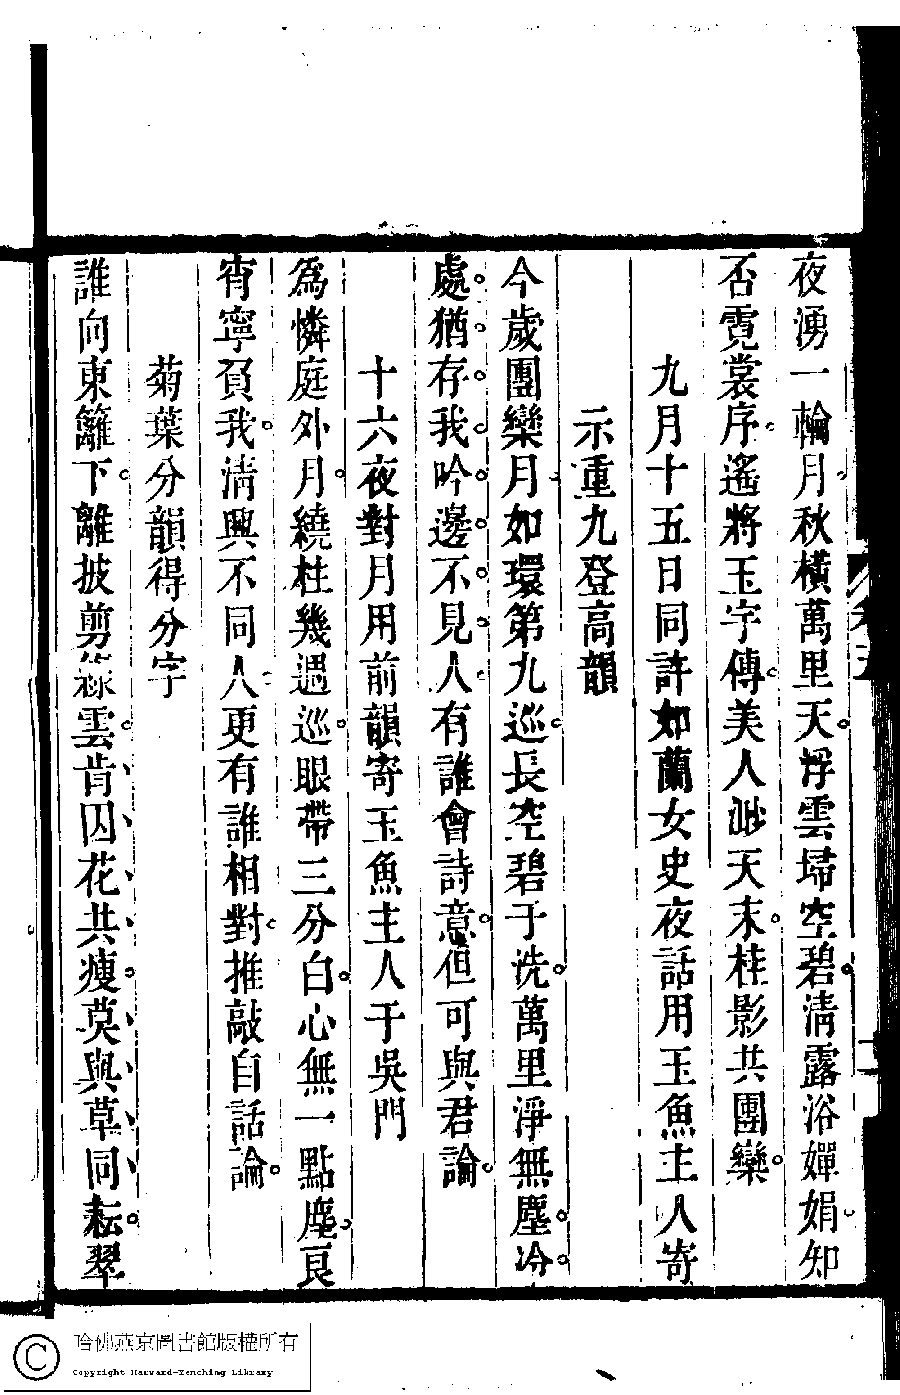 夜湧一輪月秋橫萬里天浮雲埽空碧清露浴嬋娟知
否霓裳序遙將玉宇傳美人渺天末桂影共團欒
九月十五日同許如蘭女史夜話用玉魚主人寄
示重九登高韻
今歲團欒月如環第九巡長空碧于洗萬里淨無塵冷
處猶存我吟邊不見人有誰會詩意但可與君論
十六夜對月用前韻寄玉魚主人于吳門
為憐庭外月繞柱幾遍巡眼帶三分白心無一點塵良
宵寧負我清興不同人更有誰相對推敲自話論
菊葉分韻得分字
誰向東籬下離披剪綠雲肯囚花共瘦莫與草同耘翠
哈佛燕京圖書館版權所有
Copyright Harvard-Yenching Library